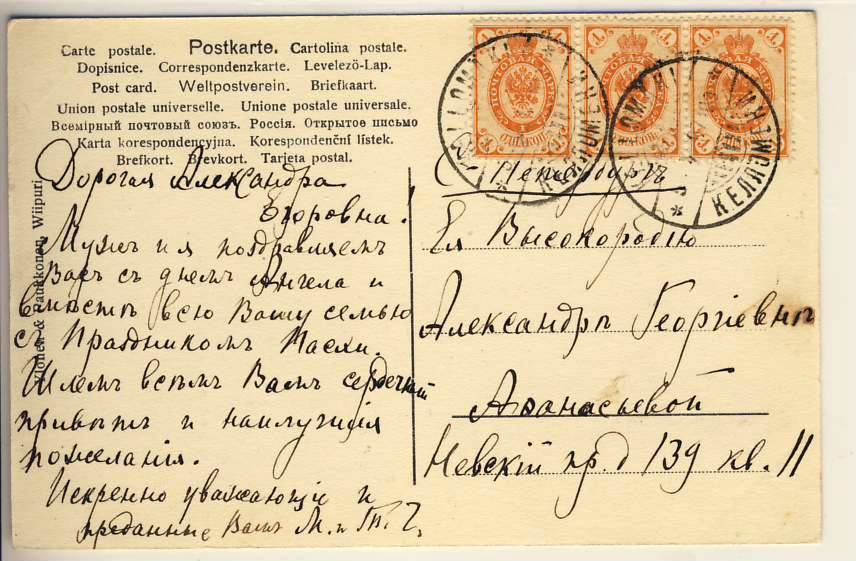 Carte postale. Postkarte. Cartolina postale.
Dopisnice. Correspondenzkarte. Levelezö-Lap.
Post card. Weltpostverein. Briefkaart.
Union postale universelle. Unione postale universale.
Всемірный почтовый союзъ. Россія. Открытое письмо
Karta korespondencyjna. Korespondenční lístek.
Brefkort. Brevkort. Tarjeta postal.
Дорогая Александра
Егоровна!
Мужъ и я поздравляемъ
Васъ съ днемъ Ангела и
вмѣстѣ всю Вашу семью
съ Праздникомъ Пасхи.
Шлемъ всѣмъ Вамъ сердечный
привѣтъ и наилучшія
пожеланія.
Искренно уважающіе и
преданные Вамъ М. и Т. Ч.
С. Петербургъ
Ея Высокородію
Александрѣ Георгіевнѣ
Аѳанасьевой
Невскій пр. д 139 кв. 11
& Paukkonen, Wiipuri
ПОЧТОВАЯ МАРКА
1
КЕЛЛОМЯКИ
КЕЛЛОМЯКИ